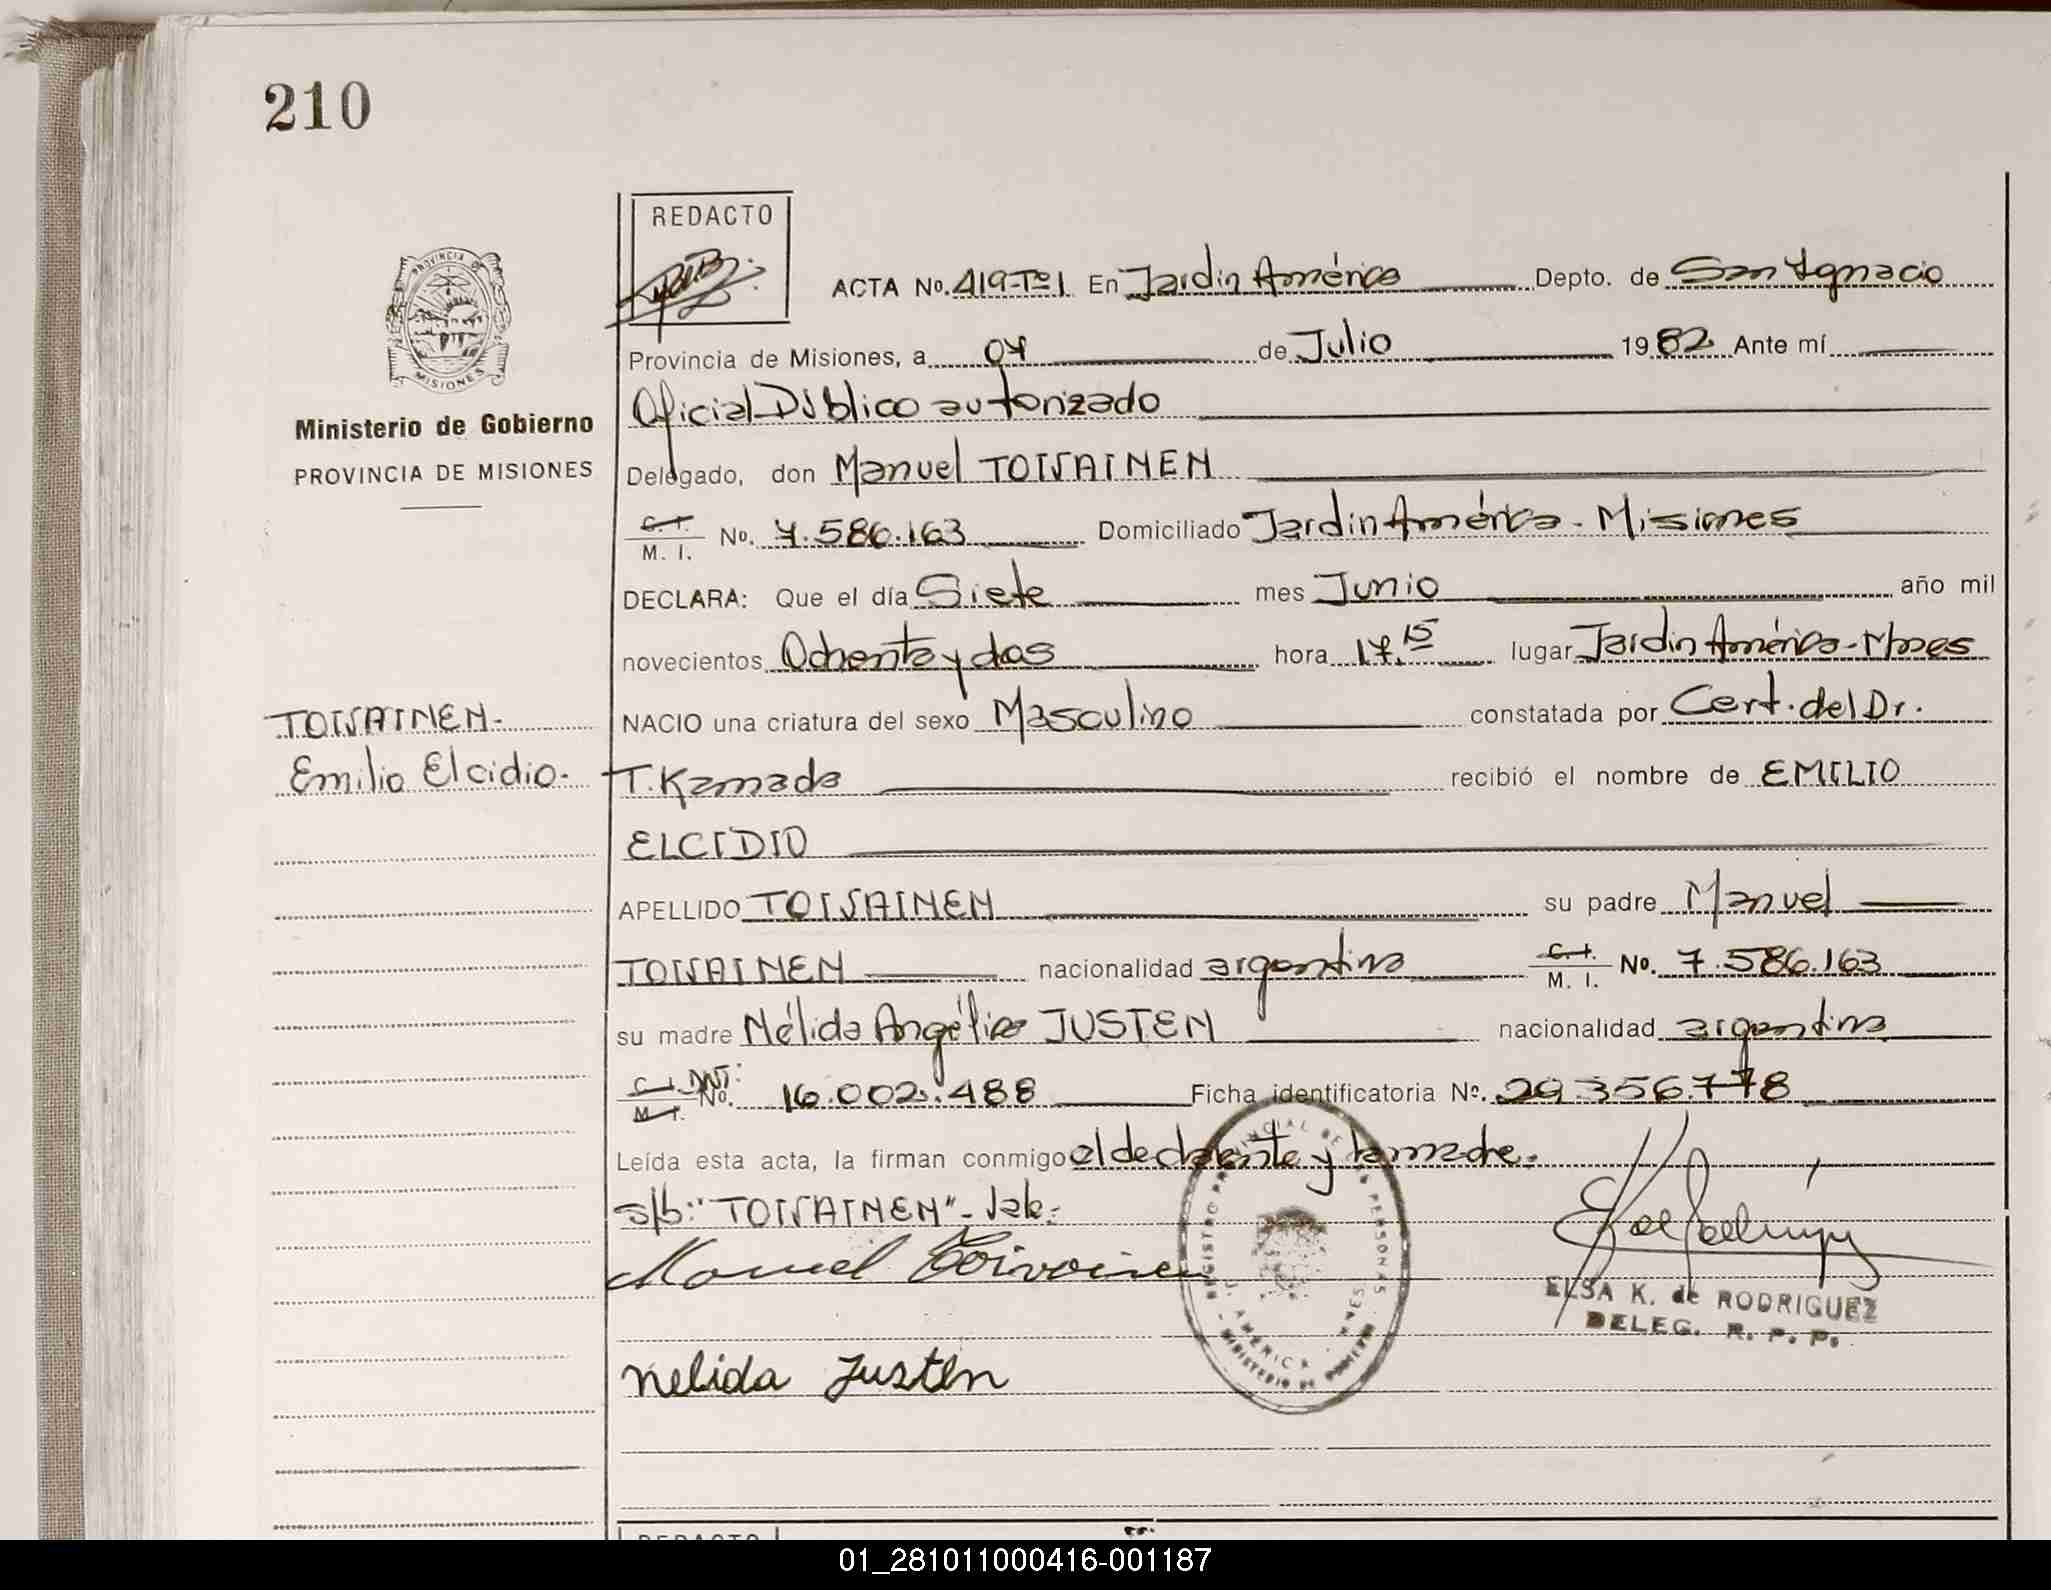 210
REDACTO
PROVINCIA DE
MISIONES
Ministerio de Gobierno
PROVINCIA DE MISIONES
ACTA No. 419-Tº1 En Jardin América Depto. de San Ignacio
Provincia de Misiones, a 07 de Julio 1982 Ante mí
Oficial Público autorizado
Delegado, don Manuel TOIVAINEN
C. I. M. I. No. 7.586.163 Domiciliado Jardin América - Misiones
DECLARA: Que el día Siete mes Junio año mil
novecientos Ochenta y dos hora 17.15 lugar Jardin América - Mnes
TOIVAINEN.- NACIO una criatura del sexo Masculino constatada por Cert. del Dr.
Emilio Elcidio.- T. Kamada recibió el nombre de EMILIO
ELCIDIO
APELLIDO TOIVAINEN su padre Manuel
TOIVAINEN nacionalidad argentina C. I. M. I. No. 7.586.163
su madre Nélida Angélica JUSTEN nacionalidad argentina
C. I. M. I. DNI: No. 16.002.488 Ficha identificatoria Nº. 29.356.778
Leída esta acta, la firman conmigo el declarante y la madre.
s/b: "TOIVAINEN"- Vale.
Manuel Toivainen
REGISTRO PROVINCIAL DE LAS PERSONAS
J. AMERICA - MNES
MINISTERIO DE GOBIERNO
ELSA K. de RODRIGUEZ
DELEG. R. P. P.
Nelida Justen
REDACTO
01_281011000416-001187